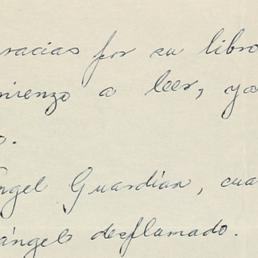 racias por su libro
mienzo a leer, ya
o.
ngel Guardián, cua
ángel desplumado.